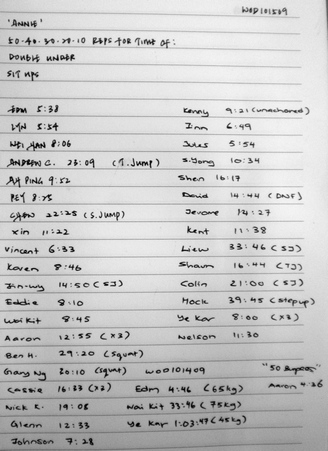 WOD 101509
'ANNIE'
50.40.30.20.10 REPS FOR TIME OF:
DOUBLE UNDER
SIT UPS
5:38 Kenny 9:21 (unachored)
LYN 5:54 Jinn 6:49
WEI HAN 8:06 Jules 5:54
ANDREW C. 23:09 (T.Jump) S.Yong 10:34
AH PING 9:52 Shen 16:17
PEY David 14:44 (DNF)
22:25 (S.Jump) Jerome 14:27
Xin 11:22 Kent 11:38
Vincent 6:33 Liew 33:46 (SJ)
Karen 8:46 Shaun 16:44 (TJ)
Jin-wy 14:50 (SJ) Colin 21:00 (SJ)
Eddie 8:10 Mock 39:45 (stepup)
Wai Kit 8:45 Ye Kar 8:00 (x3)
Aaron 12:55 (x3) Nelson 11:30
Ben H. 29:20 (squat)
Giang Ng 30:10 (squat) WOD101409 "50
Cassie 16:33 (x3) Edm 4:46 (65kg) Aaron 4:36
Nick K. 19:08 Wai Kit 33:46 (75kg)
Glenn 12:33 Ye Kar 1:03:47 (45kg)
Johnson 7:28